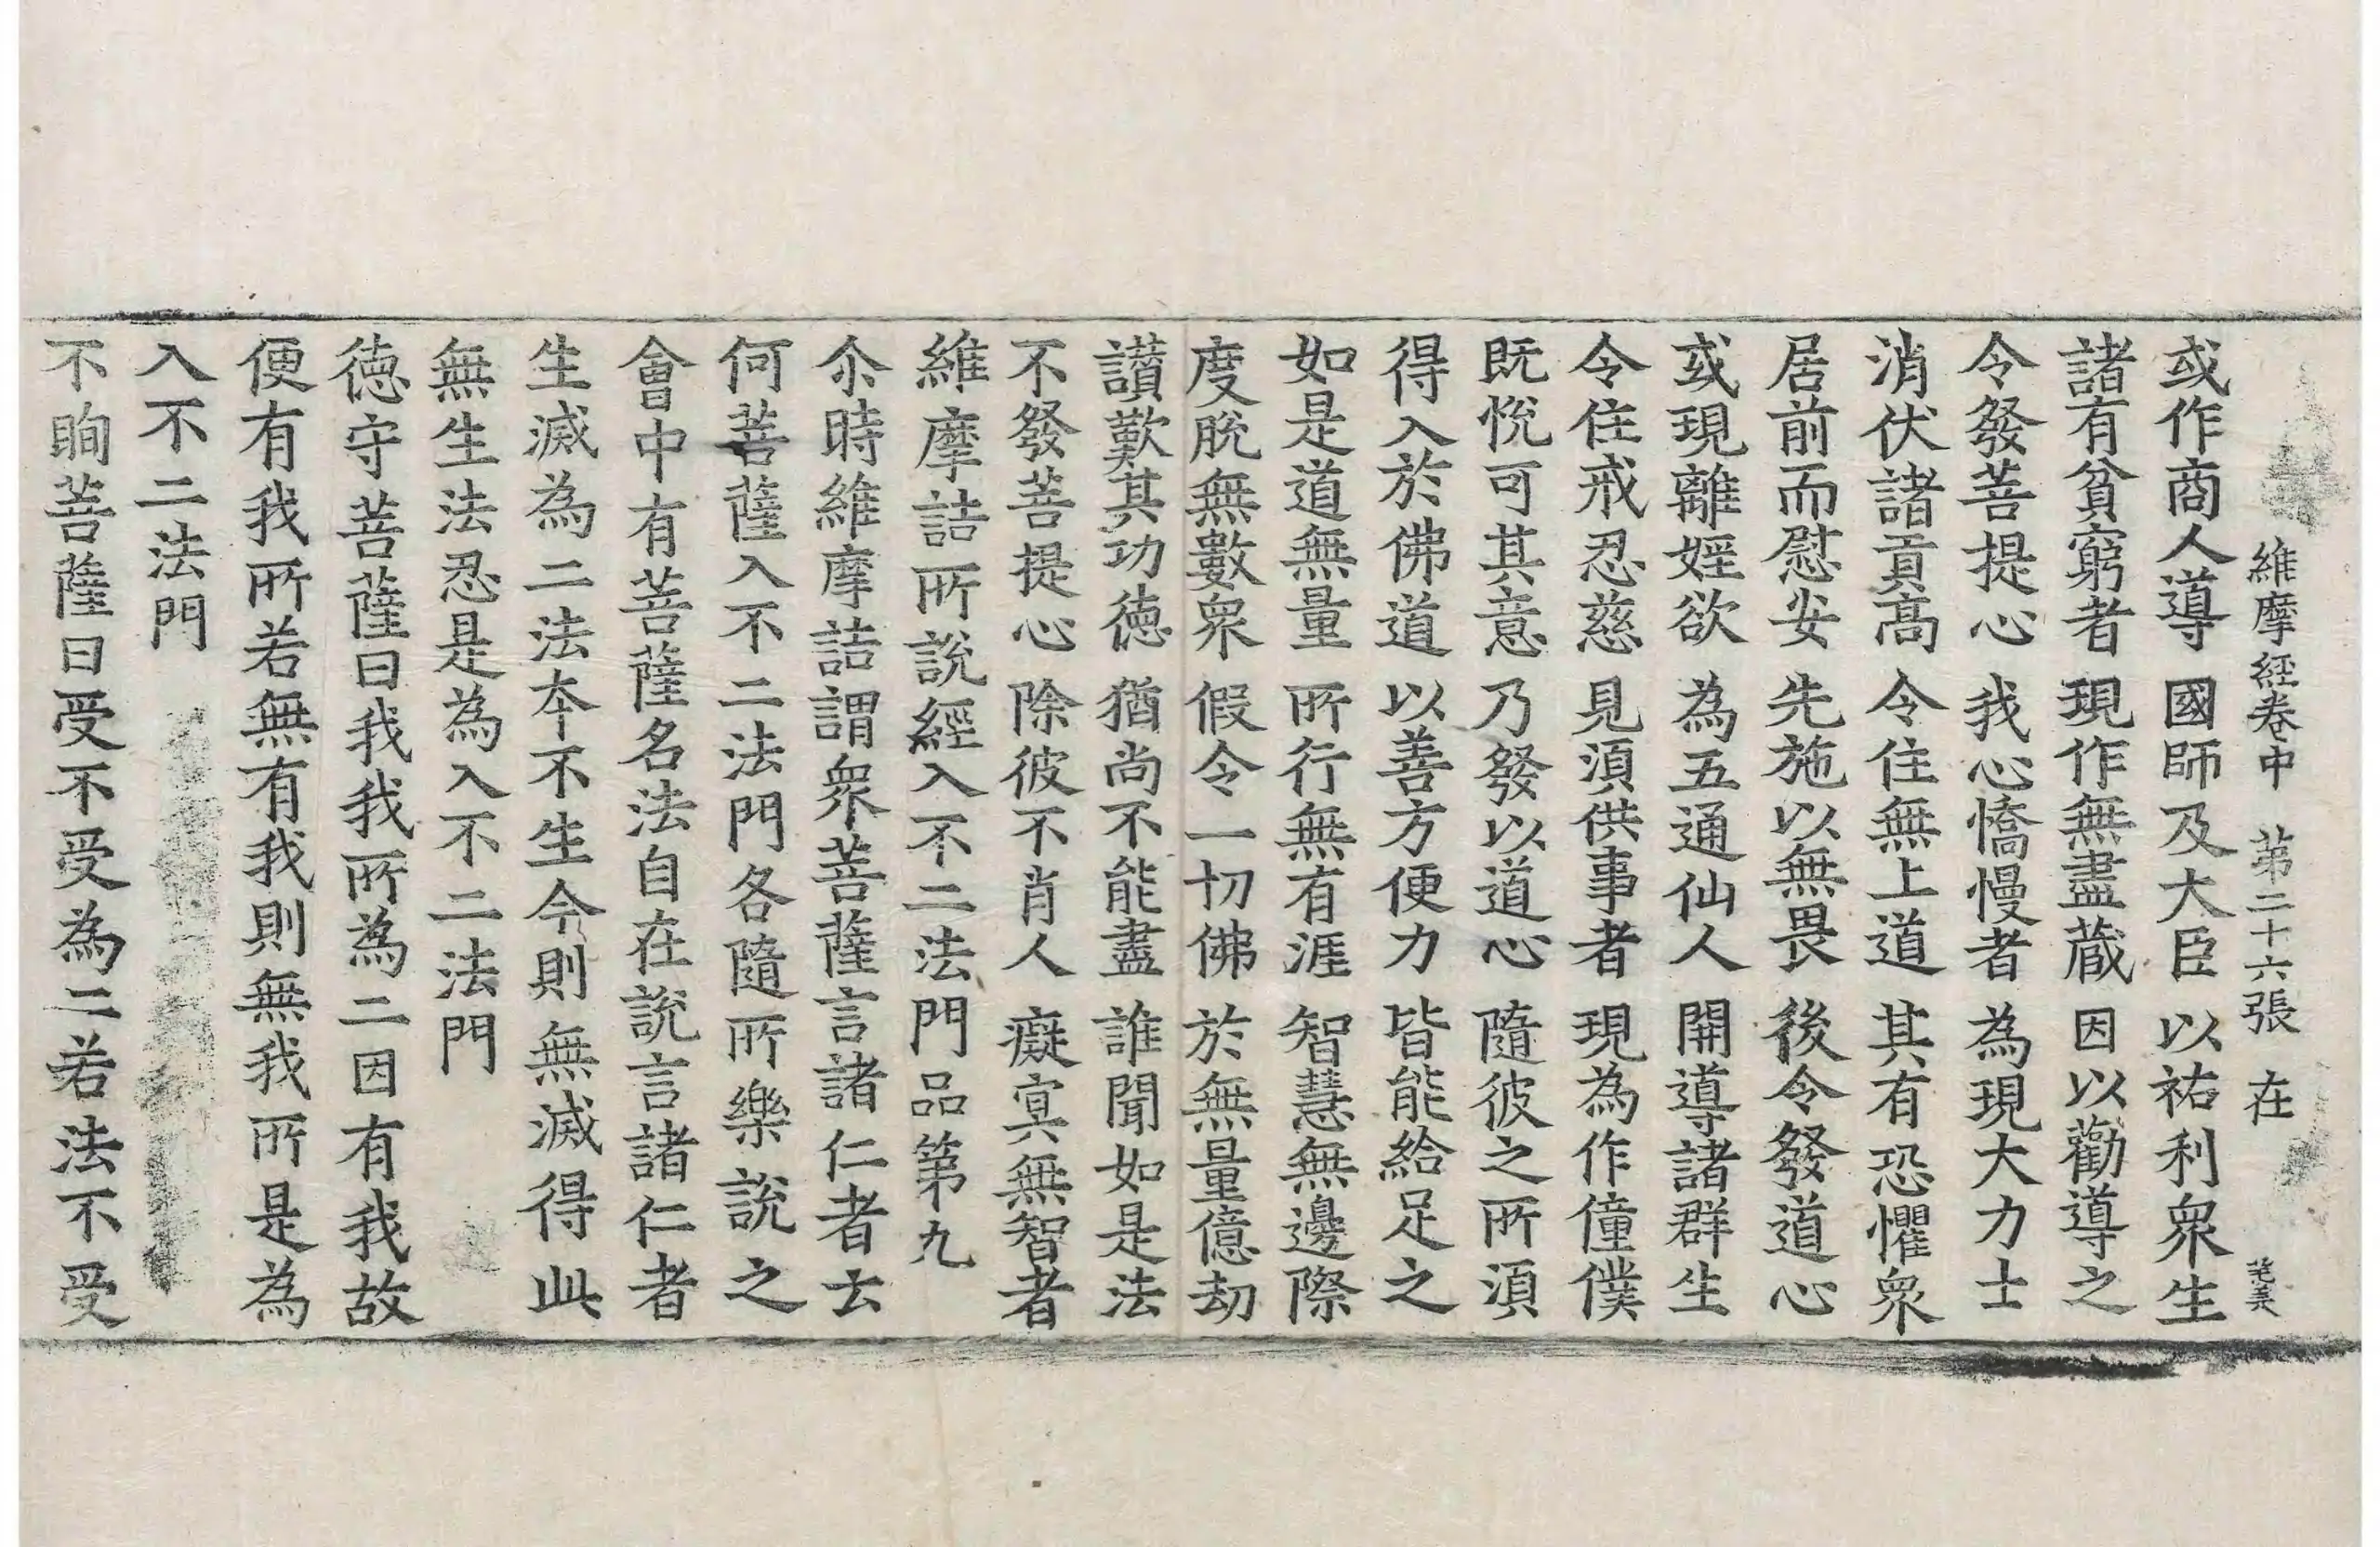 維摩經卷中　第二十六張　在
或作商人導　國師及大臣　以祐利衆生
諸有貧窮者　現作無盡蔵　因以勸導之
令發菩提心　我心憍慢者　為現大力士
消伏諸貢高　令住無上道　其有恐懼衆
居前而慰安　先施以無畏　後令發道心
或現離婬欲　為五通仙人　開導諸群生
令住戒忍慈　見湏供事者　現為作僮僕
既悅可其意　乃發以道心　隨彼之所湏
得入於佛道　以善方便力　皆能給足之
如是道無量　所行無有涯　智慧無邊際
度脫無數衆　假令一切佛　於無量億劫
讃歎其功徳　猶尚不能盡　誰聞如是法
不發菩提心　除彼不肖人　癡冥無智者
維摩詰所說經入不二法門品第九
尒時維摩詰謂衆菩薩言諸仁者云
何菩薩入不二法門各隨所樂說之
會中有菩薩名法自在說言諸仁者
生滅為二法本不生今則無滅得此
無生法忍是為入不二法門
徳守菩薩曰我我所為二因有我故
便有我所若無有我則無我所是為
入不二法門
不眴菩薩曰受不受為二若法不受